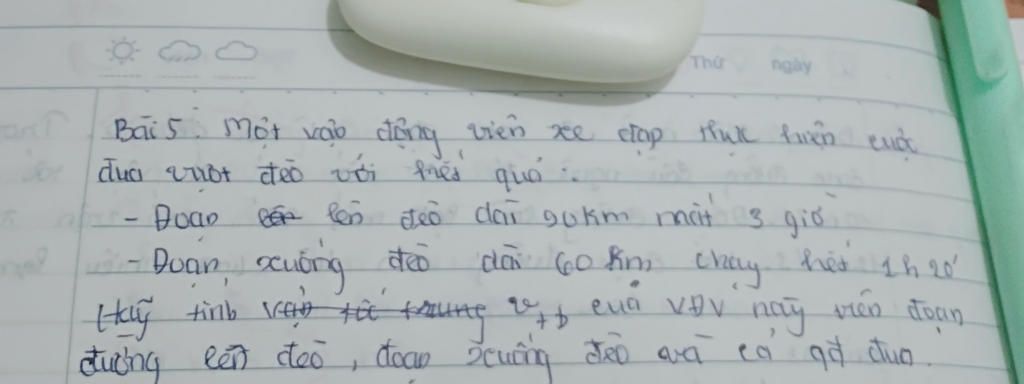 Thứ ngày
Bài 5 Một vận động viên xe đạp thực hiện cuộc
đua vượt đèo với kết quả :
- Đoạn lên đèo dài 90km mất 3 giờ
- Đoạn xuống đèo dài 60 km chạy hết 1h 20'
Hãy tính vtb của VĐV này trên đoạn
đường lên đèo, đoạn xuống đèo và cả qđ đua.